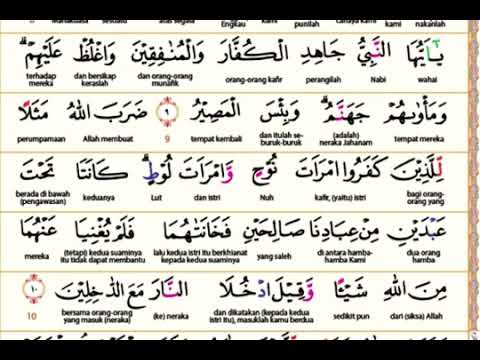 Engkau kami punilah kami nakanlah
يٰٓاَيُّهَا النَّبِيُّ جَاهِدِ الْكُفَّارَ وَالْمُنٰفِقِيْنَ وَاغْلُظْ عَلَيْهِمْۗ
wahai Nabi perangilah orang-orang kafir dan orang-orang munafik dan bersikap keraslah terhadap mereka
وَمَأْوٰىهُمْ جَهَنَّمُۗ وَبِئْسَ الْمَصِيْرُ ٩ ضَرَبَ اللّٰهُ مَثَلًا
tempat mereka (adalah) neraka Jahanam dan itulah seburuk-buruk tempat kembali 9 Allah membuat perumpamaan
لِّلَّذِيْنَ كَفَرُوا امْرَاَتَ نُوْحٍ وَّامْرَاَتَ لُوْطٍۗ كَانَتَا تَحْتَ
bagi orang-orang yang kafir, (yaitu) istri Nuh dan istri Lut keduanya berada di bawah (pengawasan)
عَبْدَيْنِ مِنْ عِبَادِنَا صَالِحَيْنِ فَخَانَتٰهُمَا فَلَمْ يُغْنِيَا عَنْهُمَا
dua orang hamba di antara hamba-hamba Kami yang saleh lalu kedua istri itu berkhianat kepada kedua suaminya (tetapi) kedua suaminya itu tidak dapat membantu mereka
مِنَ اللّٰهِ شَيْـًٔا وَّقِيْلَ ادْخُلَا النَّارَ مَعَ الدّٰخِلِيْنَ ١٠
dari (siksa) Allah sedikit pun dan dikatakan (kepada kedua istri itu), masuklah kamu berdua (ke) neraka bersama orang-orang yang masuk (neraka) 10